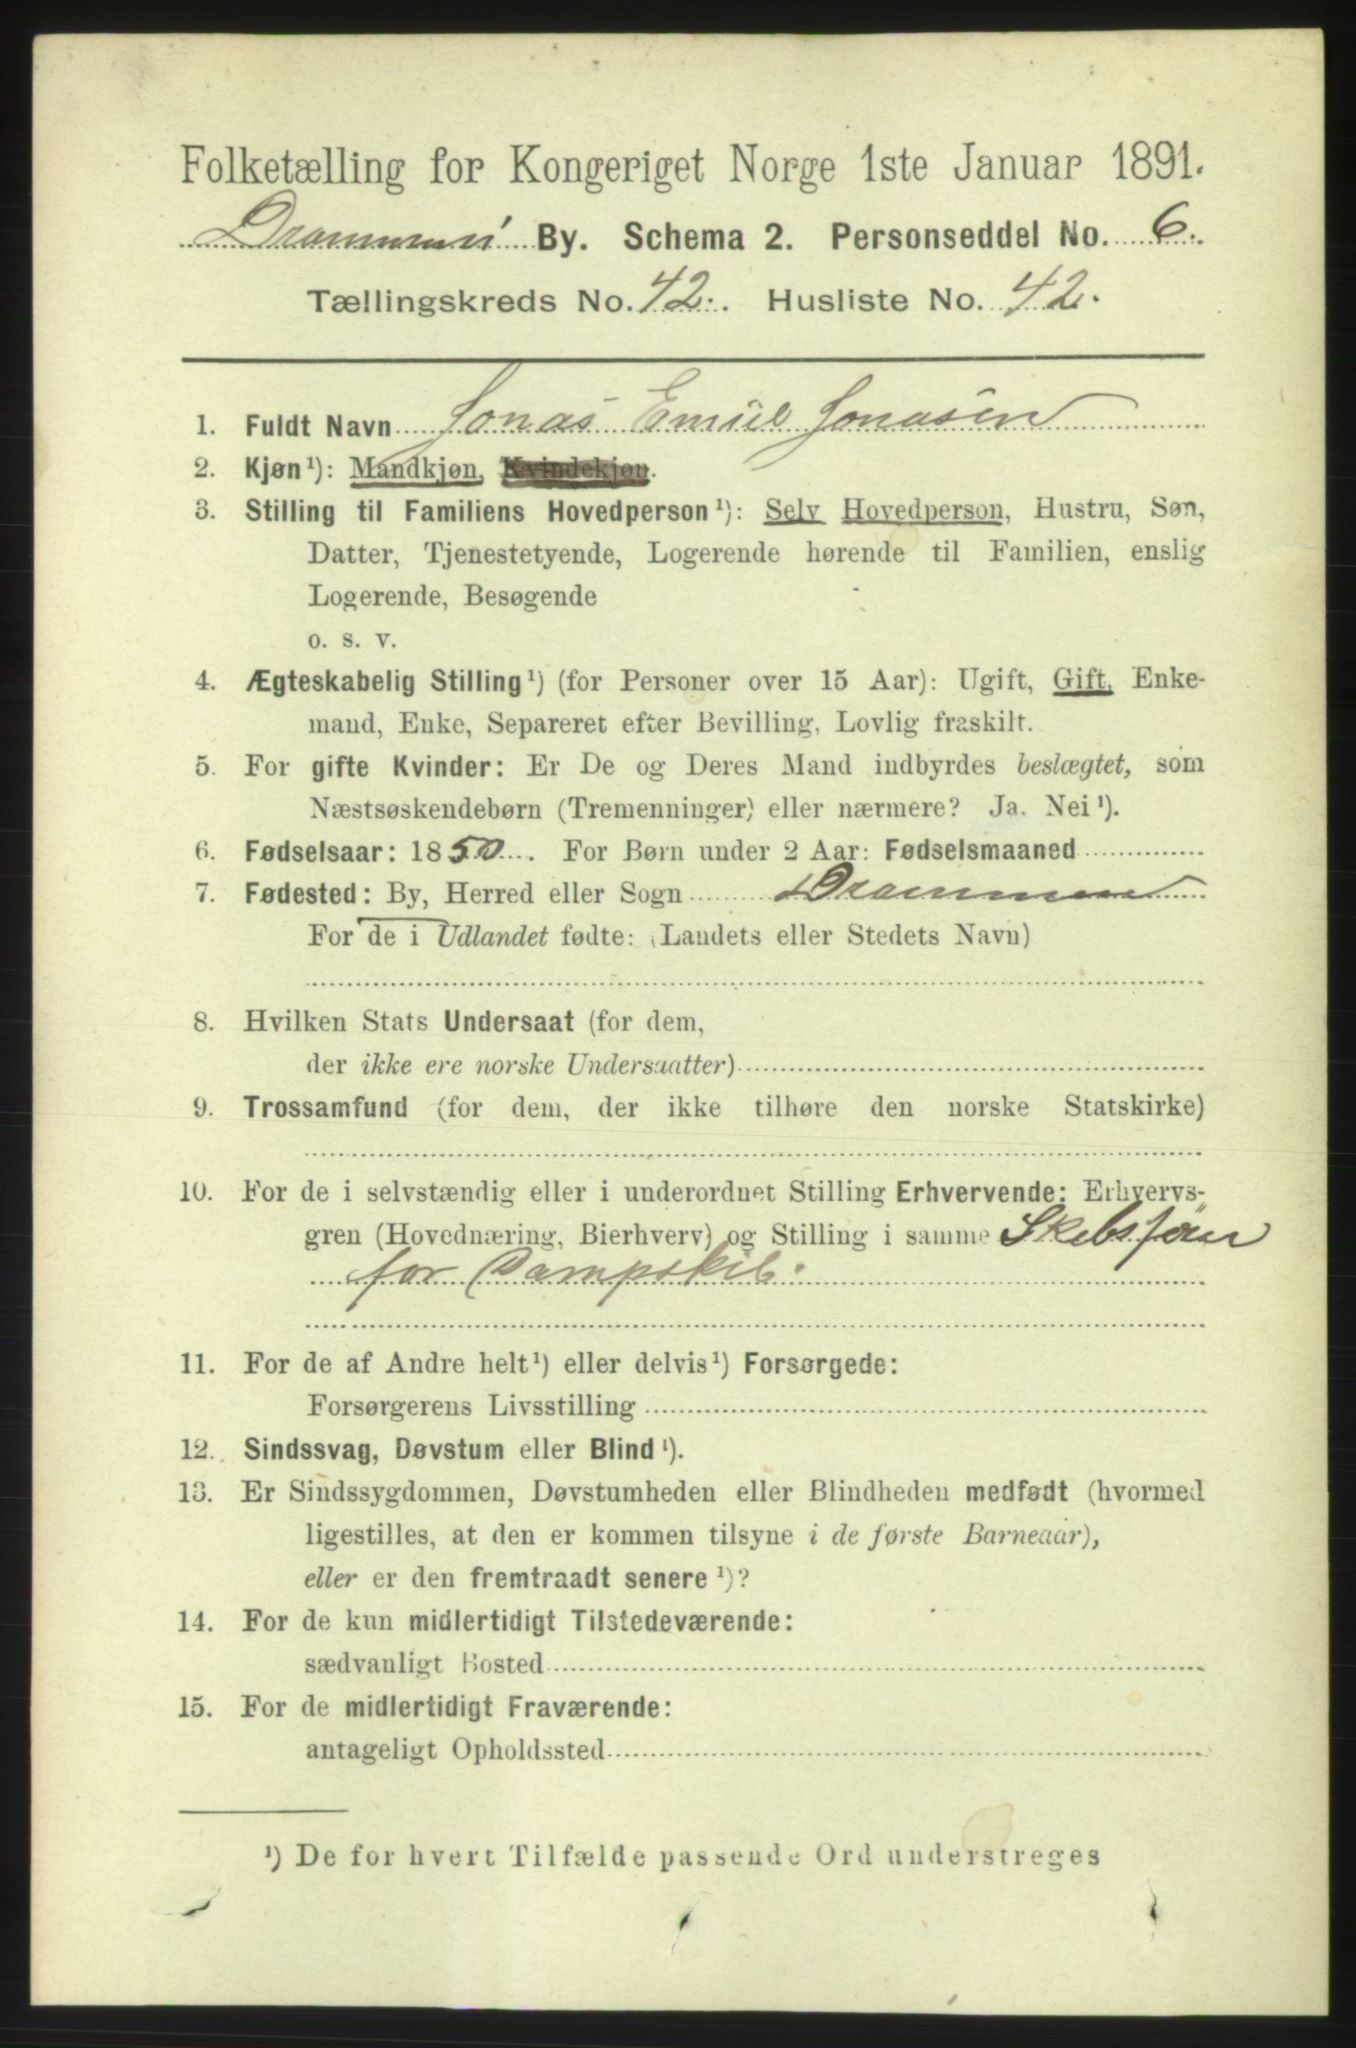 Folketælling for Kongeriget Norge 1ste Januar 1891.
Drammens By. Schema 2. Personseddel No. 6.
Tællingskreds No. 42. Husliste No. 42.
1. Fuldt Navn Jonas Emiel Jonasen
2. Kjøn¹): Mandkjøn, Kvindekjøn.
3. Stilling til Familiens Hovedperson¹): Selv Hovedperson, Hustru, Søn,
Datter, Tjenestetyende, Logerende hørende til Familien, enslig
Logerende, Besøgende
o. s. v.
4. Ægteskabelig Stilling¹) (for Personer over 15 Aar): Ugift, Gift, Enke-
mand, Enke, Separeret efter Bevilling, Lovlig fraskilt.
5. For gifte Kvinder: Er De og Deres Mand indbyrdes beslægtet, som
Næstsøskendebørn (Tremenninger) eller nærmere? Ja. Nei¹).
6. Fødselsaar: 1850. For Børn under 2 Aar: Fødselsmaaned
7. Fødested: By, Herred eller Sogn Drammen
For de i Udlandet fødte: (Landets eller Stedets Navn)
8. Hvilken Stats Undersaat (for dem,
der ikke ere norske Undersaatter)
9. Trossamfund (for dem, der ikke tilhøre den norske Statskirke)
10. For de i selvstændig eller i underordnet Stilling Erhvervende: Erhvervs-
gren (Hovednæring, Bierhverv) og Stilling i samme Skebsføer
for Dampskib.
11. For de af Andre helt¹) eller delvis¹) Forsørgede:
Forsørgerens Livsstilling
12. Sindssvag, Døvstum eller Blind¹).
13. Er Sindssygdommen, Døvstumheden eller Blindheden medfødt (hvormed
ligestilles, at den er kommen tilsyne i de første Barneaar),
eller er den fremtraadt senere¹)?
14. For de kun midlertidigt Tilstedeværende:
sædvanligt Bosted
15. For de midlertidigt Fraværende:
antageligt Opholdssted
¹) De for hvert Tilfælde passende Ord understreges